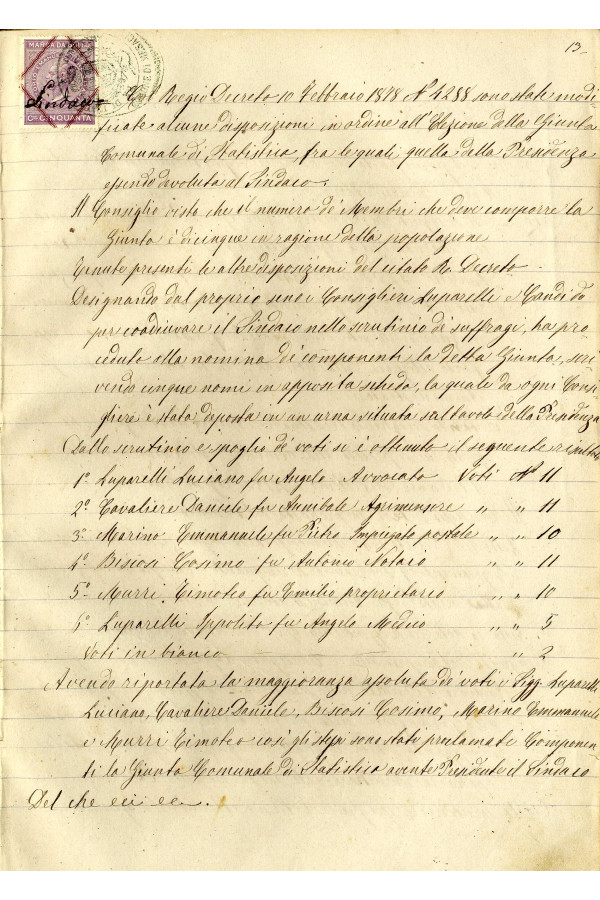 13
MARCA DA BOLLO
Sindaco
Cmi CINQUANTA
Col Regio Decreto 10 Febbraio 1878 N° 4288 sono state modi
ficate alcune disposizioni in ordine all'Elezione della Giunta
Comunale di Statistica, fra le quali quella della Presidenza
essendo devoluta al Sindaco.
Il Consiglio visto che il numero de' Membri che deve comporre la
Giunta è di cinque in ragione della popolazione
Tenute presenti le altre disposizioni del citato R. Decreto -
Designando dal proprio seno i Consiglieri Luparelli e Candido
per coadiuvare il Sindaco nello scrutinio di suffragi, ha pro
ceduto alla nomina di componenti la detta Giunta, scri
vendo cinque nomi in apposita scheda, la quale da ogni Consi
gliere è stata deposta in un urna situata sul tavolo della Presidenza
Dallo scrutinio e spoglio de' voti si è ottenuto il seguente
1° Luparelli Luciano fu Angelo Avvocato Voti N° 11
2° Cavaliere Daniele fu Annibale Agrimensore „ „ 11
3° Marino Emmanuele fu Pietro Impiegato postale „ „ 10
4° Biscosi Cosimo fu Antonio Notaio „ „ 11
5° Murri Timoteo fu Emilio proprietario „ „ 10
6° Luparelli Ippolito fu Angelo Medico „ „ 5
Voti in bianco „ 2
Avendo riportata la maggioranza assoluta de' voti i Sigg. Luparelli
Luciano, Cavaliere Daniele, Biscosi Cosimo, Marino Emmanuele
e Murri Timoteo così gli stessi sono stati proclamati Componen
ti la Giunta Comunale di Statistica avente Presidente il Sindaco
Del che